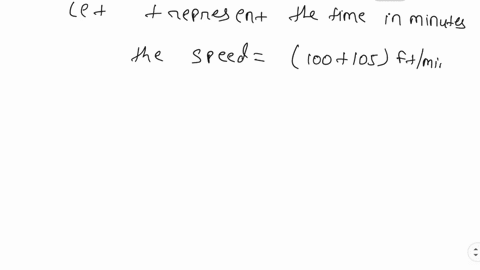 let t represent the time in minutes
the speed = (100+105) ft/min